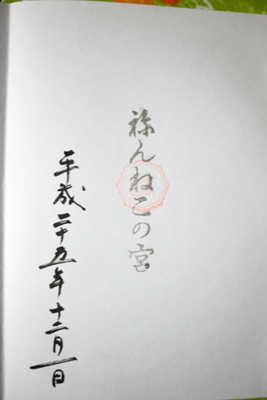 祢んねこの宮
平成二十五年十二月一日